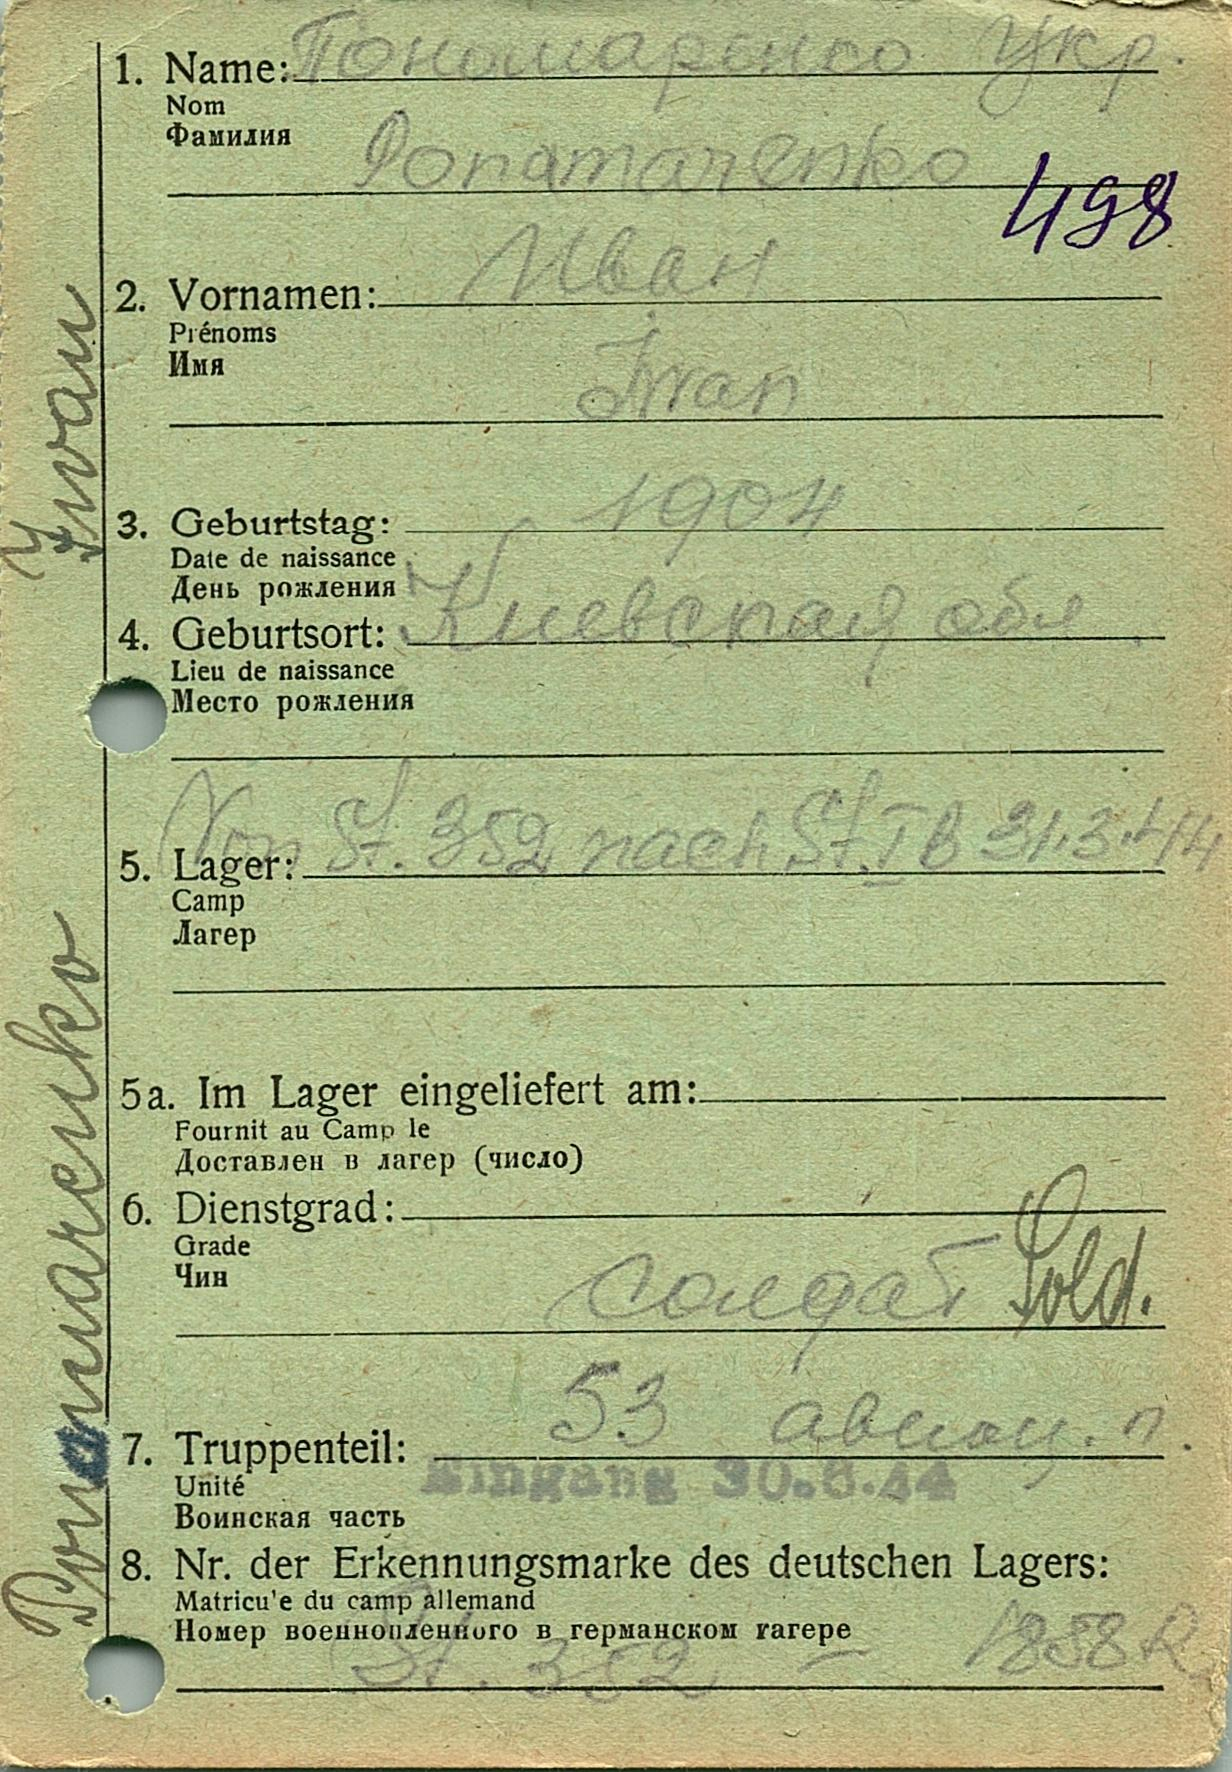 1. Name: Пономаренко Укр.
Nom
Фамилия
Ponamarenko
498
Иван
2. Vornamen:
Prénoms
Имя
Iwan
1904
3. Geburtstag:
Date de naissance
День рождения
4. Geburtsort: Киевская обл.
Lieu de naissance
Место рождения
Von St. 352 nach St. I B 31.3.44
5. Lager:
Camp
Лагер
5a. Im Lager eingeliefert am:
Fournit au Camp le
Доставлен в лагер (число)
6. Dienstgrad:
Grade
Чин
солдат Sold.
53 авиац. п.
7. Truppenteil:
Unité
Eingang 30.8.44
Воинская часть
8. Nr. der Erkennungsmarke des deutschen Lagers:
Matricu'e du camp allemand
Номер военнопленного в германском лагере
St. 352 — 1858 R
Ponamarenko Iwan